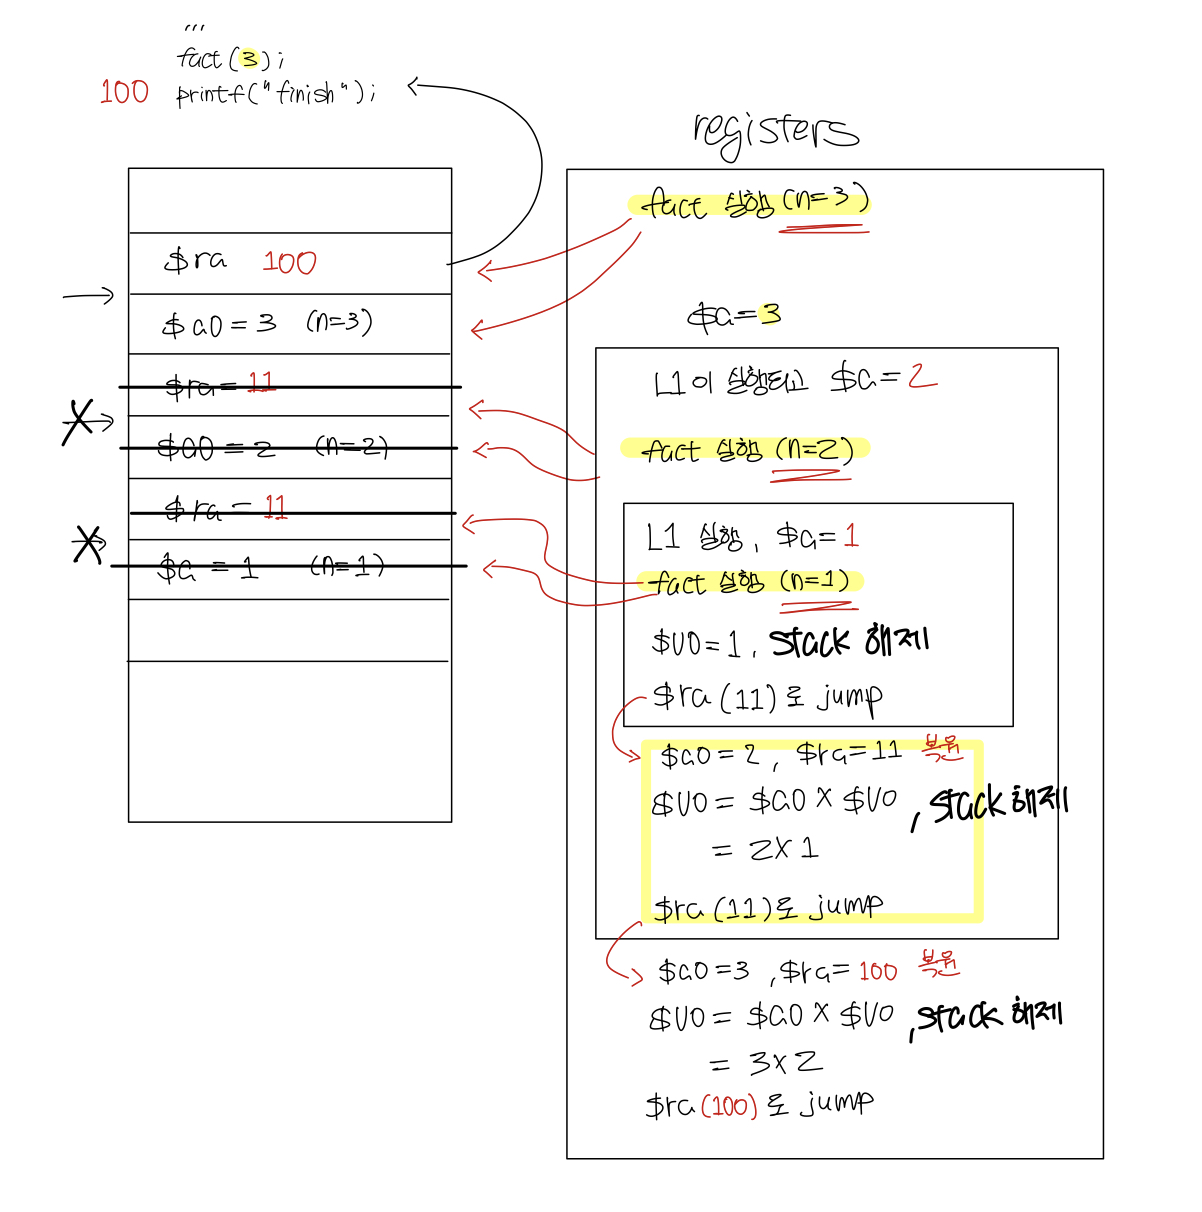 ,,,
fact(3);
100 printf("finish");
$ra 100
$a0=3 (n=3)
$ra=11
$a0=2 (n=2)
$ra=11
$a=1 (n=1)
registers
fact 실행 (n=3)
$a=3
L1이 실행되고 $a=2
fact 실행 (n=2)
L1 실행, $a=1
fact 실행 (n=1)
$v0=1, stack 해제
$ra(11)로 jump
$a0=2, $ra=11 복원
$v0=$a0×$v0, stack 해제
=2×1
$ra(11)로 jump
$a0=3, $ra=100 복원
$v0=$a0×$v0, stack 해제
=3×2
$ra(100)로 jump